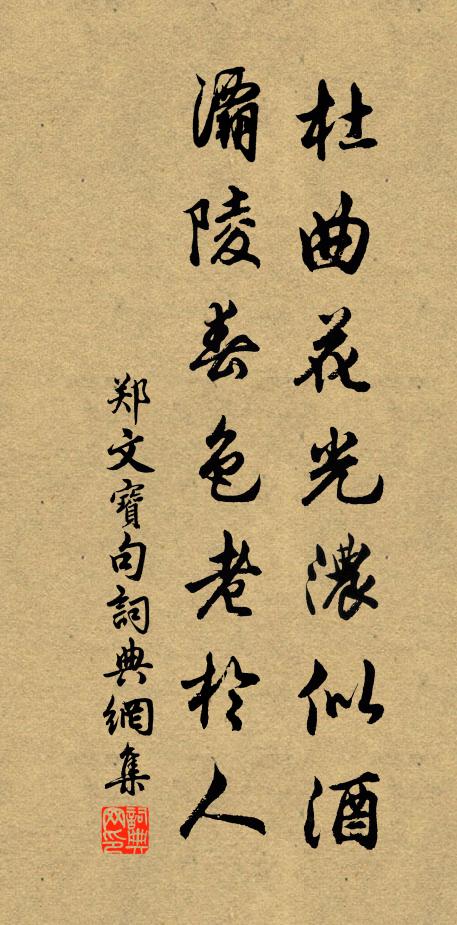 杜曲花光濃似酒
灞陵春色老於人
郑文寶句詞典網集
詞典网印